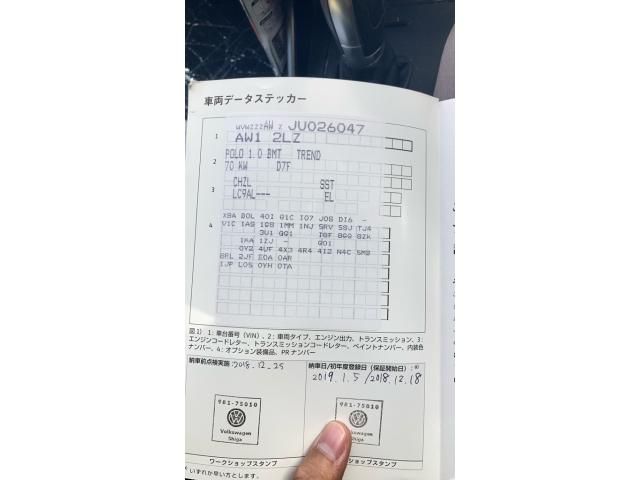 車両データステッカー
WVWZZZAW Z JU026047
1 AW1 2LZ
2 POLO 1.0 BMT TREND
70 KW D7F
3 CHZL SST
LC9AL--- EL
4 XBA D0L 4O1 G1C IO7 J0S DI6 -
V1C IAS 1G8 1MM 1NJ 5RV 5SJ TJ4
3U1 GG1 IGF 8G0 8ZK
1KA 1ZJ - GO1
0Y2 4UF 4X3 4R4 4I2 N4C 5MB
8RL 2JF E0A 0AR
1JP L05 0YH 0TA
図1) 1:車台番号(VIN)、2:車両タイプ、エンジン出力、トランスミッション、3:
エンジンコードレター、トランスミッションコードレター、ペイントナンバー、内装色
ナンバー、4:オプション装備品、PRナンバー
納車前点検実施: 2018.12.25
納車日/初年度登録日(保証開始日):※
2019.1.5/2018.12.18
981-75010
Volkswagen
Shiga
981-75010
Volkswagen
Shiga
ワークショップスタンプ
ワークショップスタンプ
いずれか早い方とします。